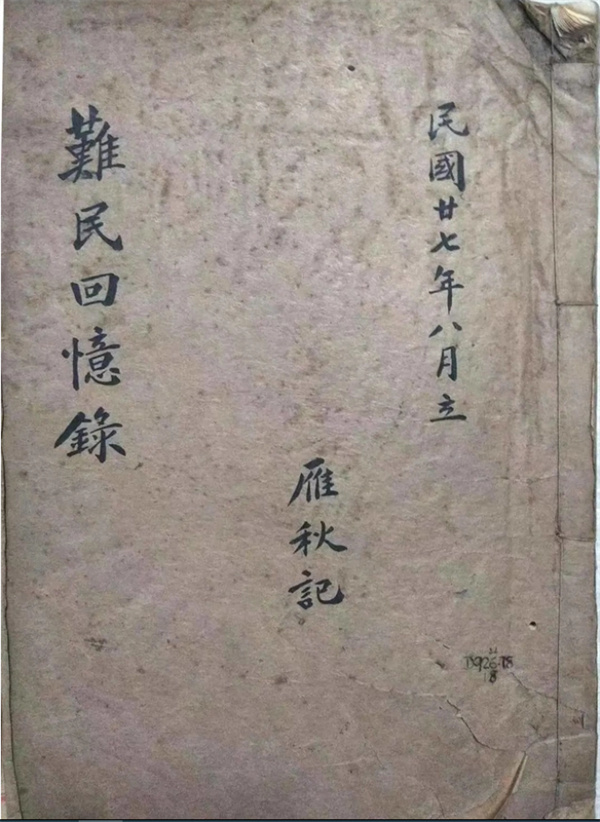 民國廿七年八月立
雁秋記
難民回憶錄